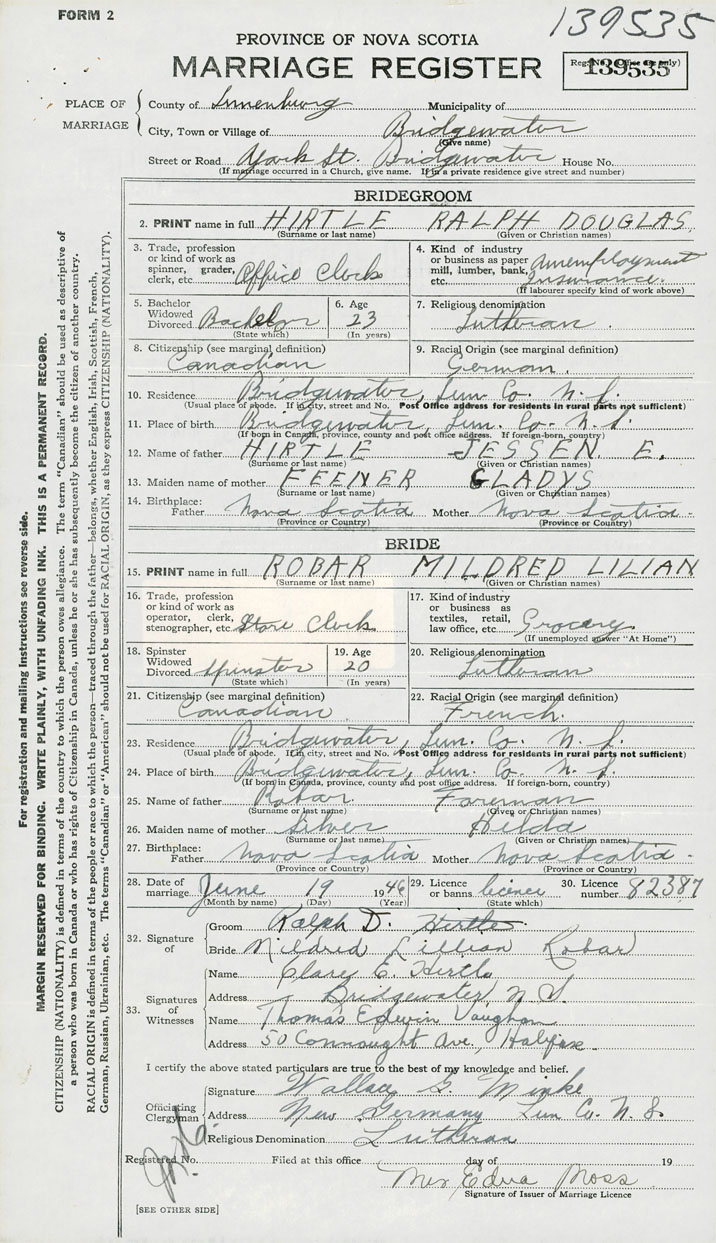 FORM 2
139535
PROVINCE OF NOVA SCOTIA
MARRIAGE REGISTER
139535
PLACE OF MARRIAGE
County of Lunenburg Municipality of
City, Town or Village of Bridgewater
(Give name)
Street or Road York St. Bridgewater House No.
(If marriage occurred in a Church, give name. If in a private residence give street and number)
BRIDEGROOM
2. PRINT name in full HIRTLE RALPH DOUGLAS
(Surname or last name) (Given or Christian names)
3. Trade, profession or kind of work as spinner, grader, clerk, etc. Office Clerk
4. Kind of industry or business as paper mill, lumber, bank, etc. Unemployment Insurance.
(If labourer specify kind of work above)
5. Bachelor Widowed Divorced Bachelor
(State which)
6. Age 23
(In years)
7. Religious denomination Lutheran.
8. Citizenship (see marginal definition) Canadian
9. Racial Origin (see marginal definition) German.
10. Residence Bridgewater, Lun. Co. N. S.
(Usual place of abode. If in city, street and No. Post Office address for residents in rural parts not sufficient)
11. Place of birth Bridgewater, Lun. Co. N. S.
(If born in Canada, province, county and post office address. If foreign-born, country)
12. Name of father HIRTLE JESSEN E.
(Surname or last name) (Given or Christian names)
13. Maiden name of mother FEENER GLADYS
(Surname or last name) (Given or Christian names)
14. Birthplace: Father Nova Scotia Mother Nova Scotia.
(Province or Country) (Province or Country)
BRIDE
15. PRINT name in full ROBAR MILDRED LILIAN
(Surname or last name) (Given or Christian names)
16. Trade, profession or kind of work as operator, clerk, stenographer, etc. Store Clerk
17. Kind of industry or business as textiles, retail, law office, etc. Grocery
(If unemployed answer "At Home")
18. Spinster Widowed Divorced Spinster
(State which)
19. Age 20
(In years)
20. Religious denomination Lutheran
21. Citizenship (see marginal definition) Canadian
22. Racial Origin (see marginal definition) French.
23. Residence Bridgewater, Lun. Co. N. S.
(Usual place of abode. If in city, street and No. Post Office address for residents in rural parts not sufficient)
24. Place of birth Bridgewater, Lun. Co. N. S.
(If born in Canada, province, county and post office address. If foreign-born, country)
25. Name of father Robar Foreman
(Surname or last name) (Given or Christian names)
26. Maiden name of mother Silver Hilda
(Surname or last name) (Given or Christian names)
27. Birthplace: Father Nova Scotia Mother Nova Scotia.
(Province or Country) (Province or Country)
28. Date of marriage June 19 1946
(Month by name) (Day) (Year)
29. Licence or banns licence
(State which)
30. Licence number 82387
32. Signature of
Groom Ralph D. Hirtle.
Bride Mildred Lillian Robar
33. Signatures of Witnesses
Name E. Hirtle
Address Bridgewater, N. S.
Name Thomas Edwin Vaughan
Address 50 Connaught Ave, Halifax
I certify the above stated particulars are true to the best of my knowledge and belief.
Officiating Clergyman
Signature Wallace G. Minke
Address New Germany Lun Co. N. S.
Religious Denomination Lutheran
Registered No. Filed at this office day of 19
Mrs Edna Moss
Signature of Issuer of Marriage Licence
[SEE OTHER SIDE]
For registration and mailing instructions see reverse side.
MARGIN RESERVED FOR BINDING. WRITE PLAINLY, WITH UNFADING INK. THIS IS A PERMANENT RECORD.
CITIZENSHIP (NATIONALITY) is defined in terms of the country to which the person owes allegiance. The term "Canadian" should be used as descriptive of
a person who was born in Canada or who has rights of Citizenship in Canada, unless he or she has subsequently become the citizen of another country.
RACIAL ORIGIN is defined in terms of the people or race to which the person—traced through the father—belongs, whether English, Irish, Scottish, French,
German, Russian, Ukrainian, etc. The terms "Canadian" or "American" should not be used for RACIAL ORIGIN, as they express CITIZENSHIP (NATIONALITY).